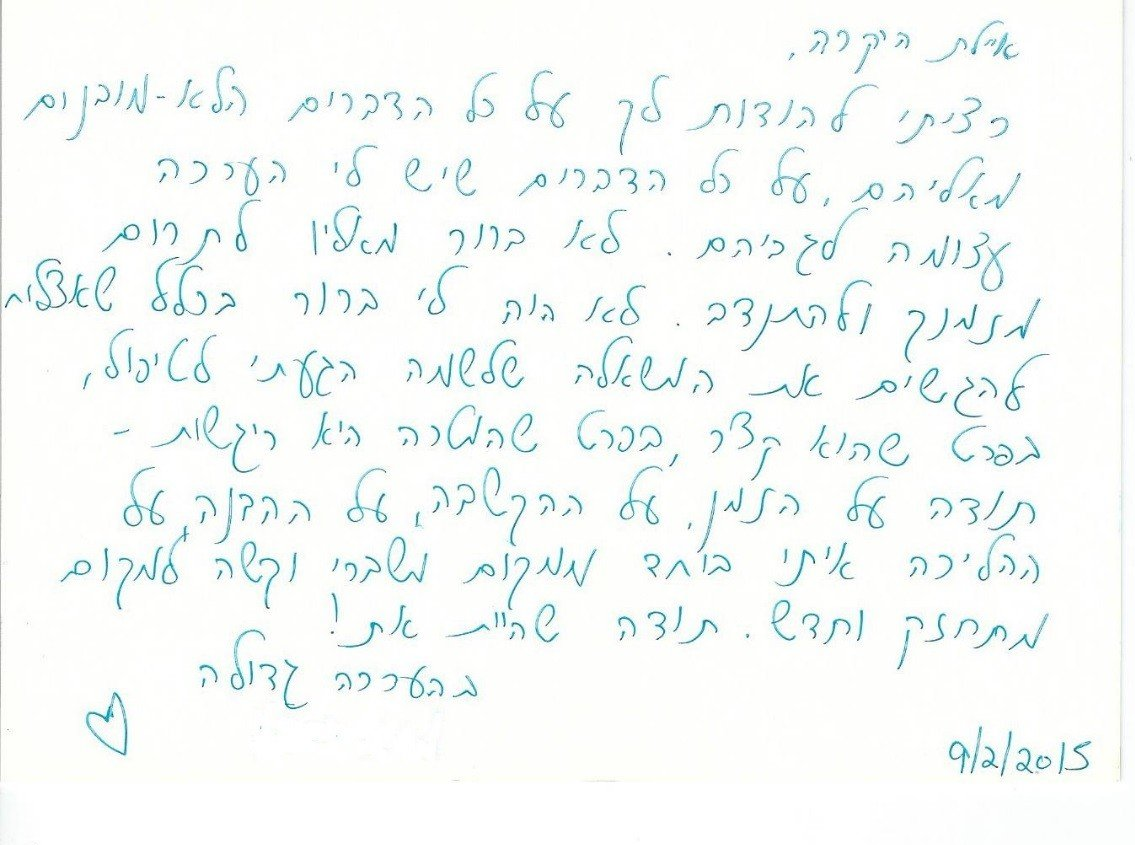 איילת היקרה,
רציתי להודות לך על כל הדברים הלא-מובנים
מאליהם, על כל הדברים שיש לי הערכה
עצומה לגביהם. לא ברור מאליו לתרום
מזמנך ולהתנדב. לא היה לי ברור בכלל שאצליח
להגשים את המשאלה שלשמה הגעתי לטיפול,
בפרט שהוא קצר, בפרט שהמטרה היא ריגשית -
תודה על הזמן, על ההקשבה, על ההבנה, על
ההליכה איתי ביחד ממקום משברי וקשה למקום
מתחזק וחדש. תודה שהיית את!
בהערכה גדולה
9/2/2015